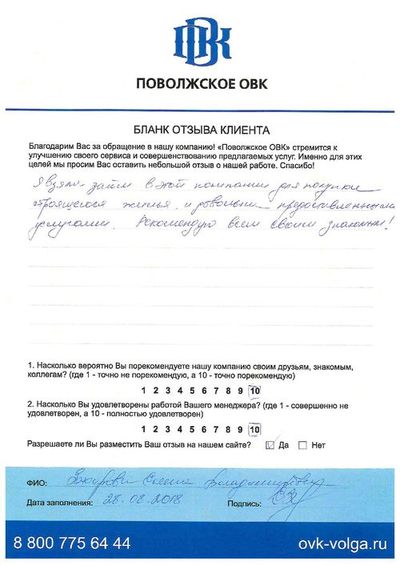 ОВК
ПОВОЛЖСКОЕ ОВК
БЛАНК ОТЗЫВА КЛИЕНТА
Благодарим Вас за обращение в нашу компанию! «Поволжское ОВК» стремится к
улучшению своего сервиса и совершенствованию предлагаемых услуг. Именно для этих
целей мы просим Вас оставить небольшой отзыв о нашей работе. Спасибо!
Я взяла займ в этой компании для покупки
строящегося жилья и довольна предоставленными
услугами. Рекомендую всем своим знакомым!
1. Насколько вероятно Вы порекомендуете нашу компанию своим друзьям, знакомым,
коллегам? (где 1 - точно не порекомендую, а 10 - точно порекомендую)
1 2 3 4 5 6 7 8 9 10
2. Насколько Вы удовлетворены работой Вашего менеджера? (где 1 - совершенно не
удовлетворен, а 10 - полностью удовлетворен)
1 2 3 4 5 6 7 8 9 10
Разрешаете ли Вы разместить Ваш отзыв на нашем сайте? Да Нет
ФИО: Владимировна
Дата заполнения: 28.02.2018 Подпись:
8 800 775 64 44 ovk-volga.ru